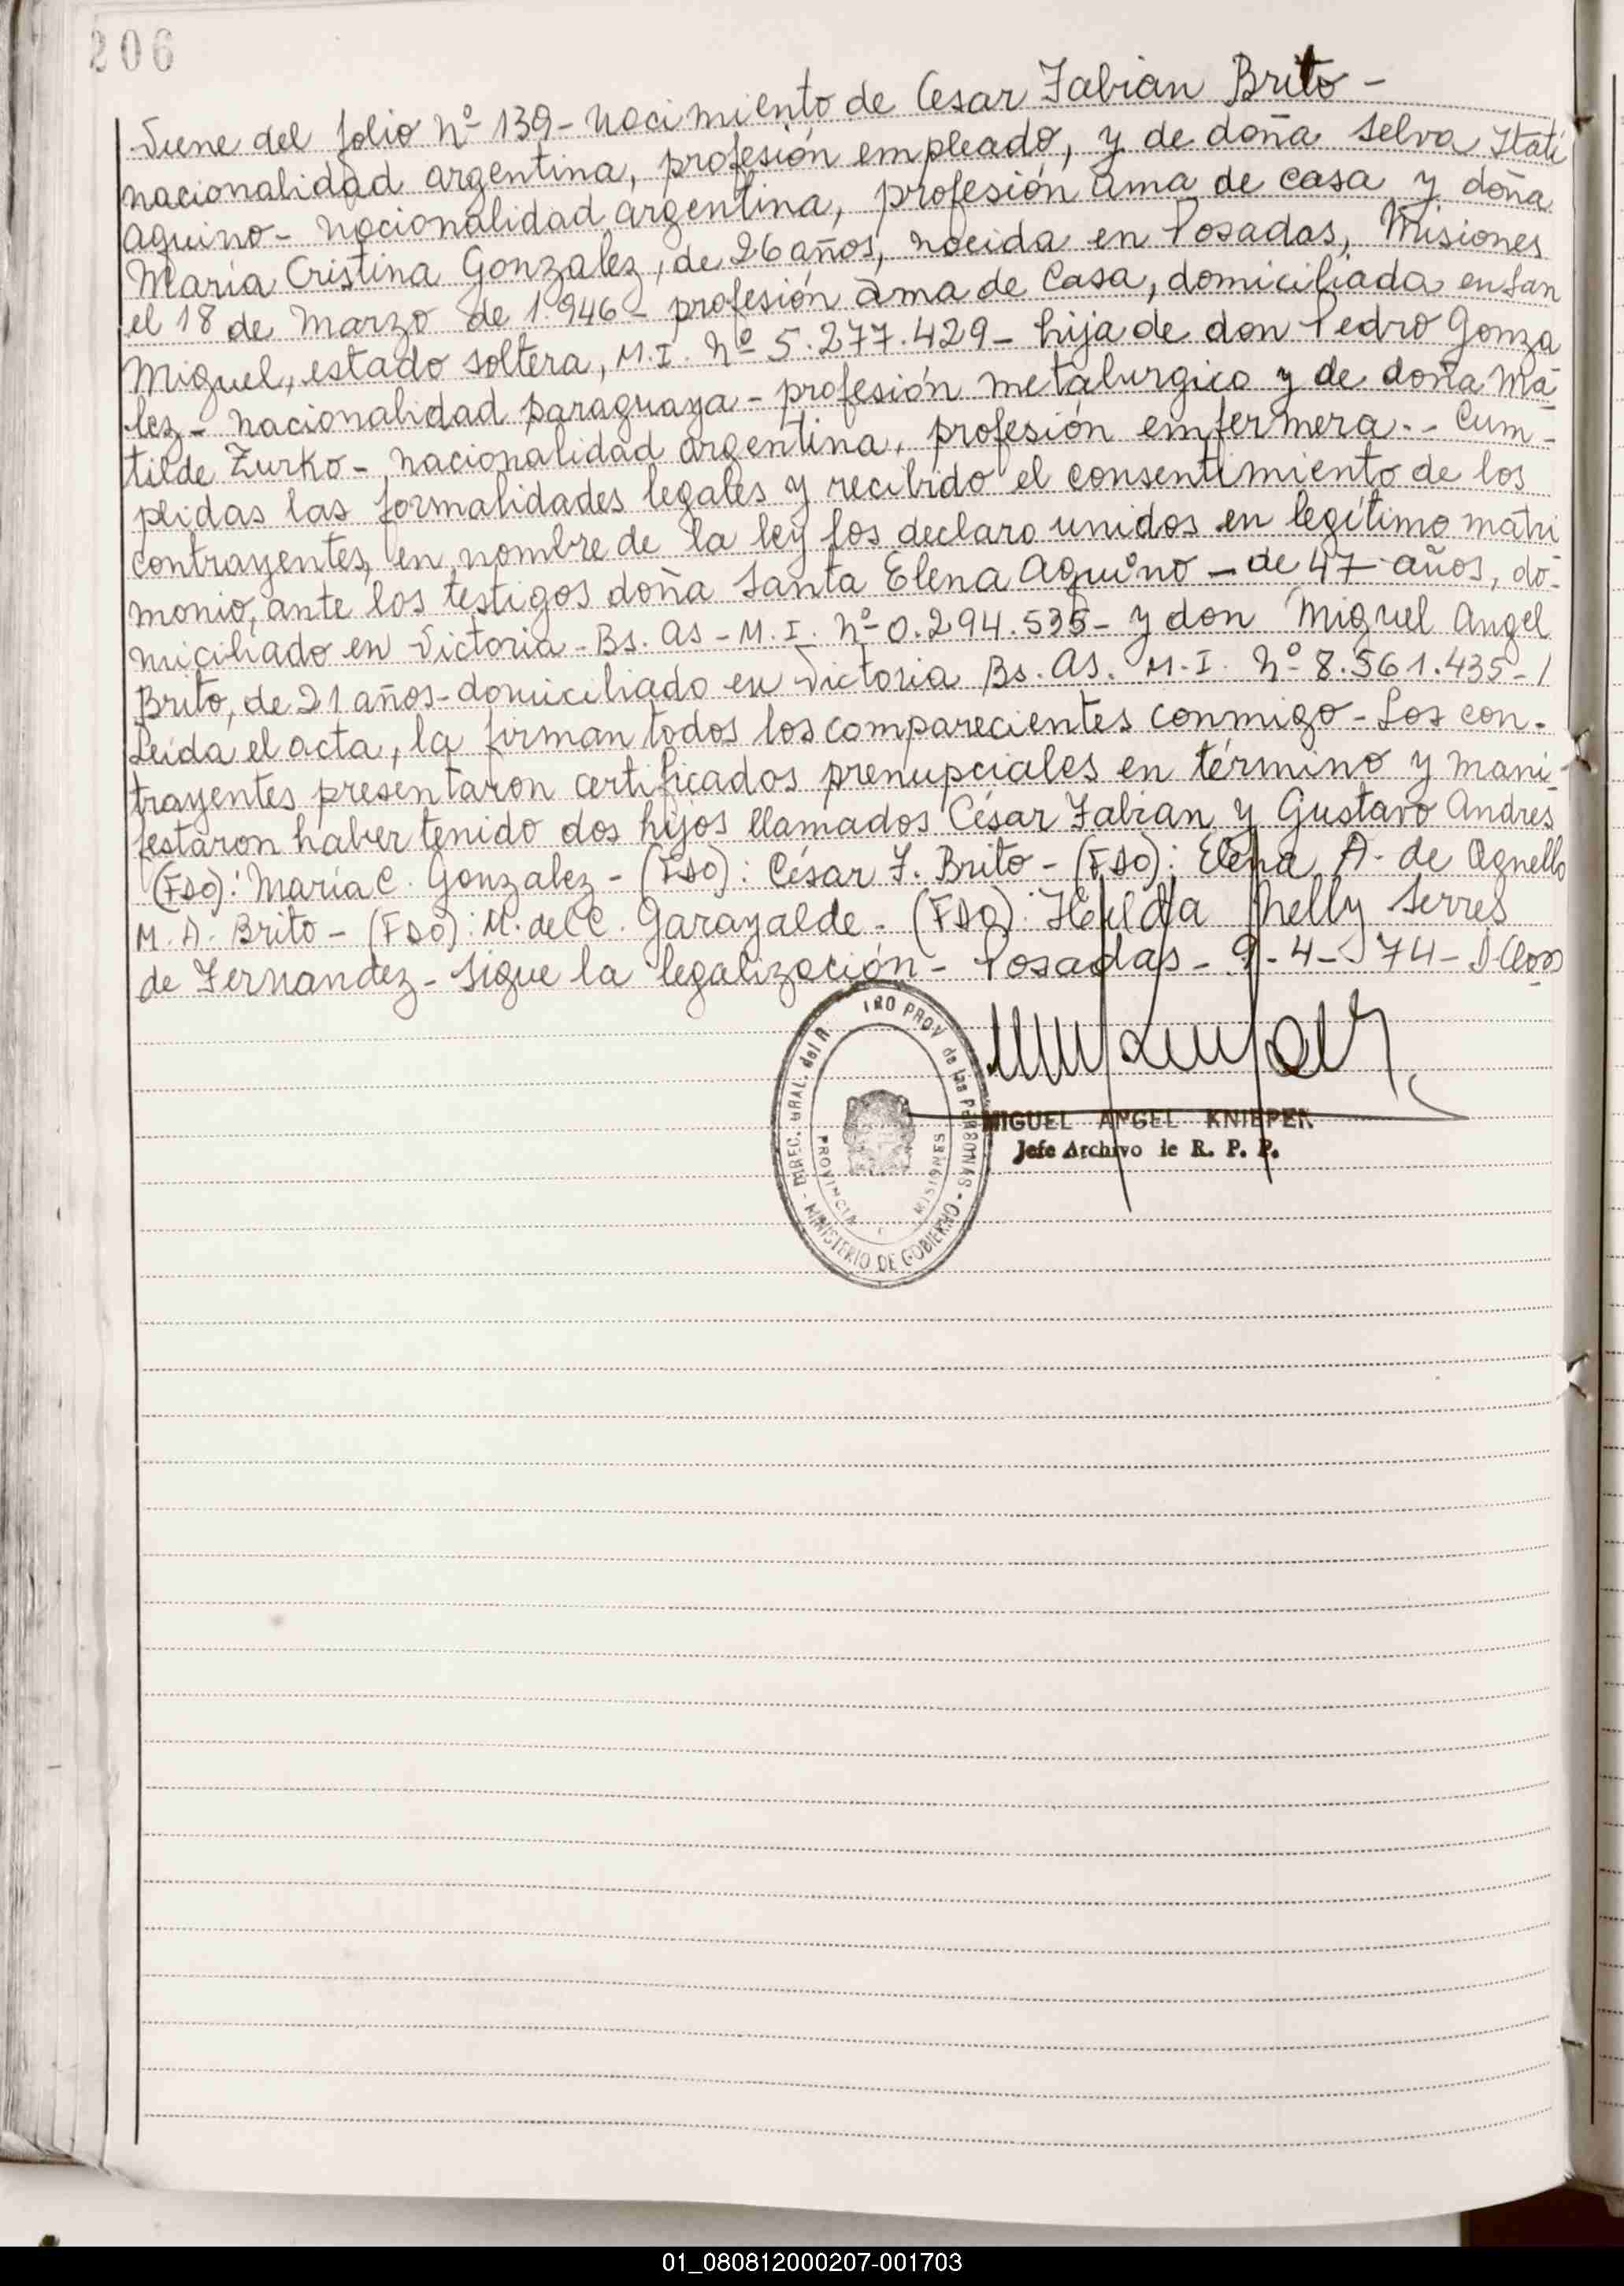 206
Viene del folio Nº 139 - Nacimiento de Cesar Fabian Brito -
nacionalidad argentina, profesión empleado, y de doña Selva Itatí
Aquino - nacionalidad argentina, profesión ama de casa y doña
María Cristina Gonzalez, de 26 años, nacida en Posadas, Misiones
el 18 de Marzo de 1.946 - profesión ama de casa, domiciliada en San
Miguel, estado soltera, M.I. Nº 5.277.429 - hija de don Pedro Gonza
lez - nacionalidad paraguaya - profesión metalurgico y de doña Ma-
tilde Zurko - nacionalidad argentina, profesión enfermera. - Cum-
plidas las formalidades legales y recibido el consentimiento de los
contrayentes, en nombre de la ley los declaro unidos en legítimo matri
monio, ante los testigos doña Santa Elena Aquino - de 47 años, do-
miciliado en Victoria - Bs. As - M.I. Nº 0.294.535 - y don Miguel Angel
Brito, de 21 años - domiciliado en Victoria Bs. As. M.I. Nº 8.561.435 - /
Leida el acta, la firman todos los comparecientes conmigo - Los con-
trayentes presentaron certificados prenupciales en término y mani-
festaron haber tenido dos hijos llamados César Fabian y Gustavo Andres
(Fdo): María C. Gonzalez - (Fdo): César F. Brito - (Fdo): Elena A. de Agnello
M. A. Brito - (Fdo): M. del C. Garayalde - (Fdo): Hulda Nelly Serres
de Fernandez - Sigue la legalización - Posadas - 9 - 4 - 74 -
DIREC. GRAL. del R. PROV de las PERSONAS - MINISTERIO DE GOBIERNO -
PROVINCIA MISIONES
MIGUEL ANGEL KNIEPER
Jefe Archivo de R. P. P.
01_080812000207-001703